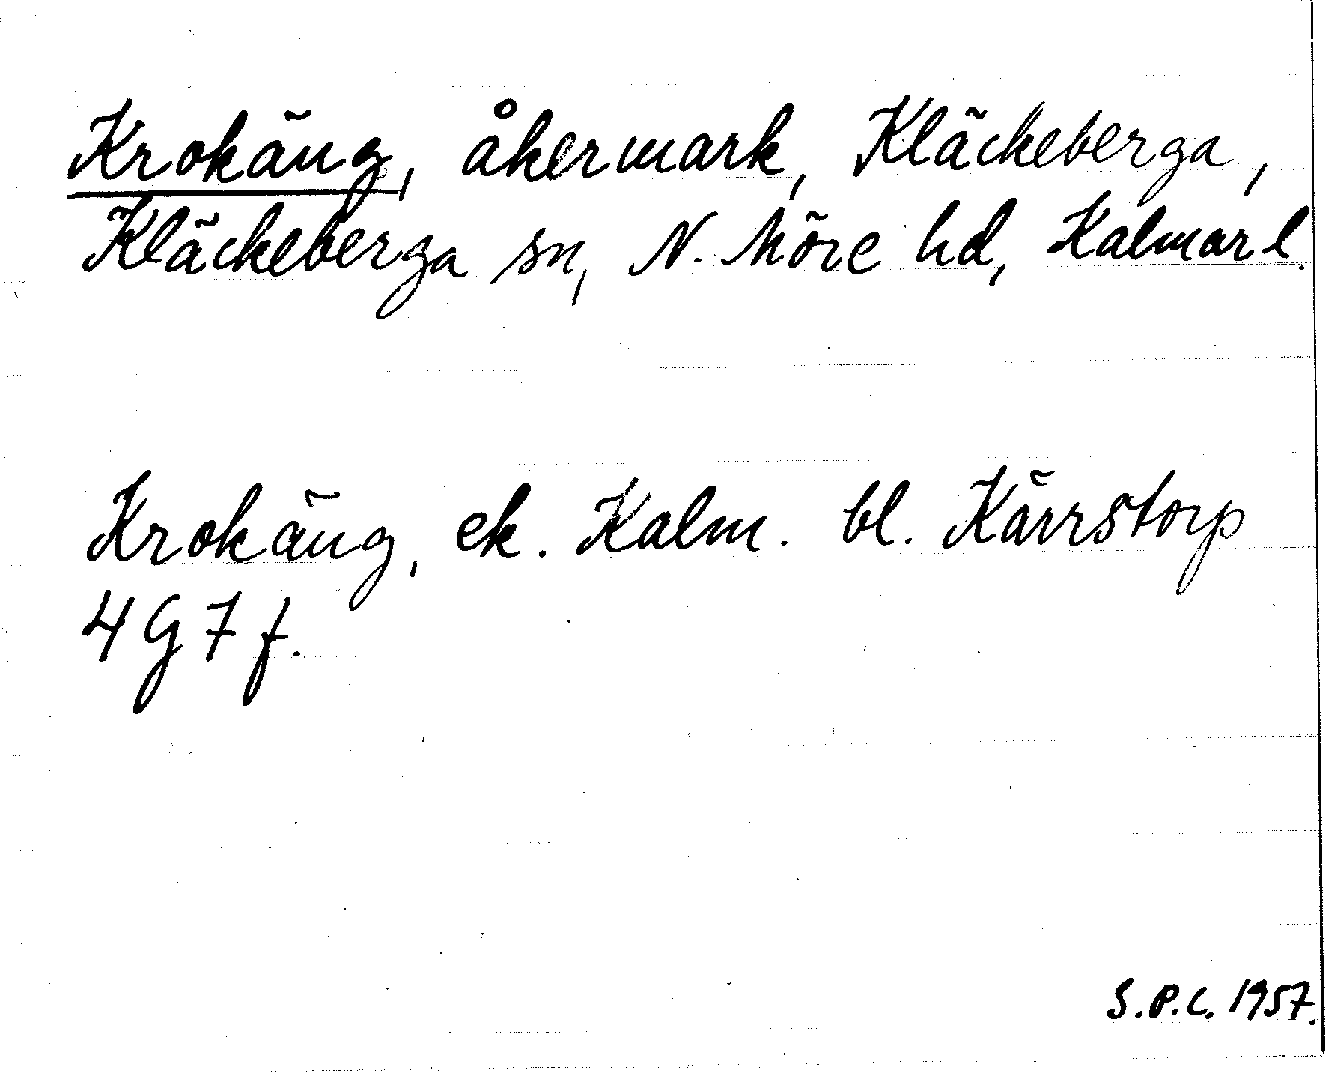 Krokäng, åkermark, Kläckeberga,
Kläckeberga sn, N. Möre hd, Kalmar l.
Krokäng, ek. Kalm. bl. Kärrstorp
4 G 7 f.
S.P.C. 1957.